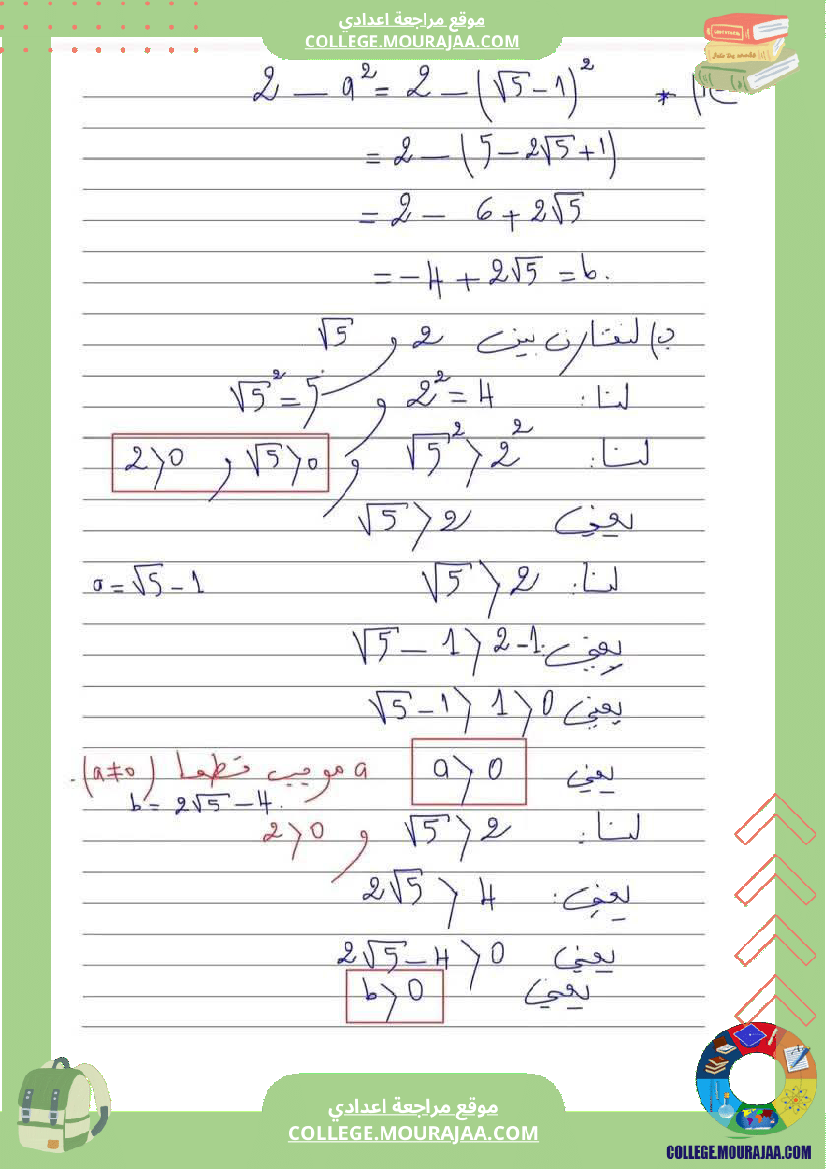 موقع مراجعة اعدادي
COLLEGE.MOURAJAA.COM
* 2 − a² = 2 − (√5 − 1)²
= 2 − (5 − 2√5 + 1)
= 2 − 6 + 2√5
= −4 + 2√5 = b.
ب) لنقارن بين 2 و √5
لنا: 2² = 4 و √5² = 5
لنا: √5² > 2² و √5 > 0 و 2 > 0
يعني √5 > 2
لنا: √5 > 2 a = √5 − 1
يعني: √5 − 1 > 2 − 1
يعني √5 − 1 > 1 > 0
يعني a > 0 a موجب قطعا (a ≠ 0).
b = 2√5 − 4.
لنا: √5 > 2 و 2 > 0
يعني: 2√5 > 4
يعني 2√5 − 4 > 0
يعني b > 0
موقع مراجعة اعدادي
COLLEGE.MOURAJAA.COM
COLLEGE.MOURAJAA.COM